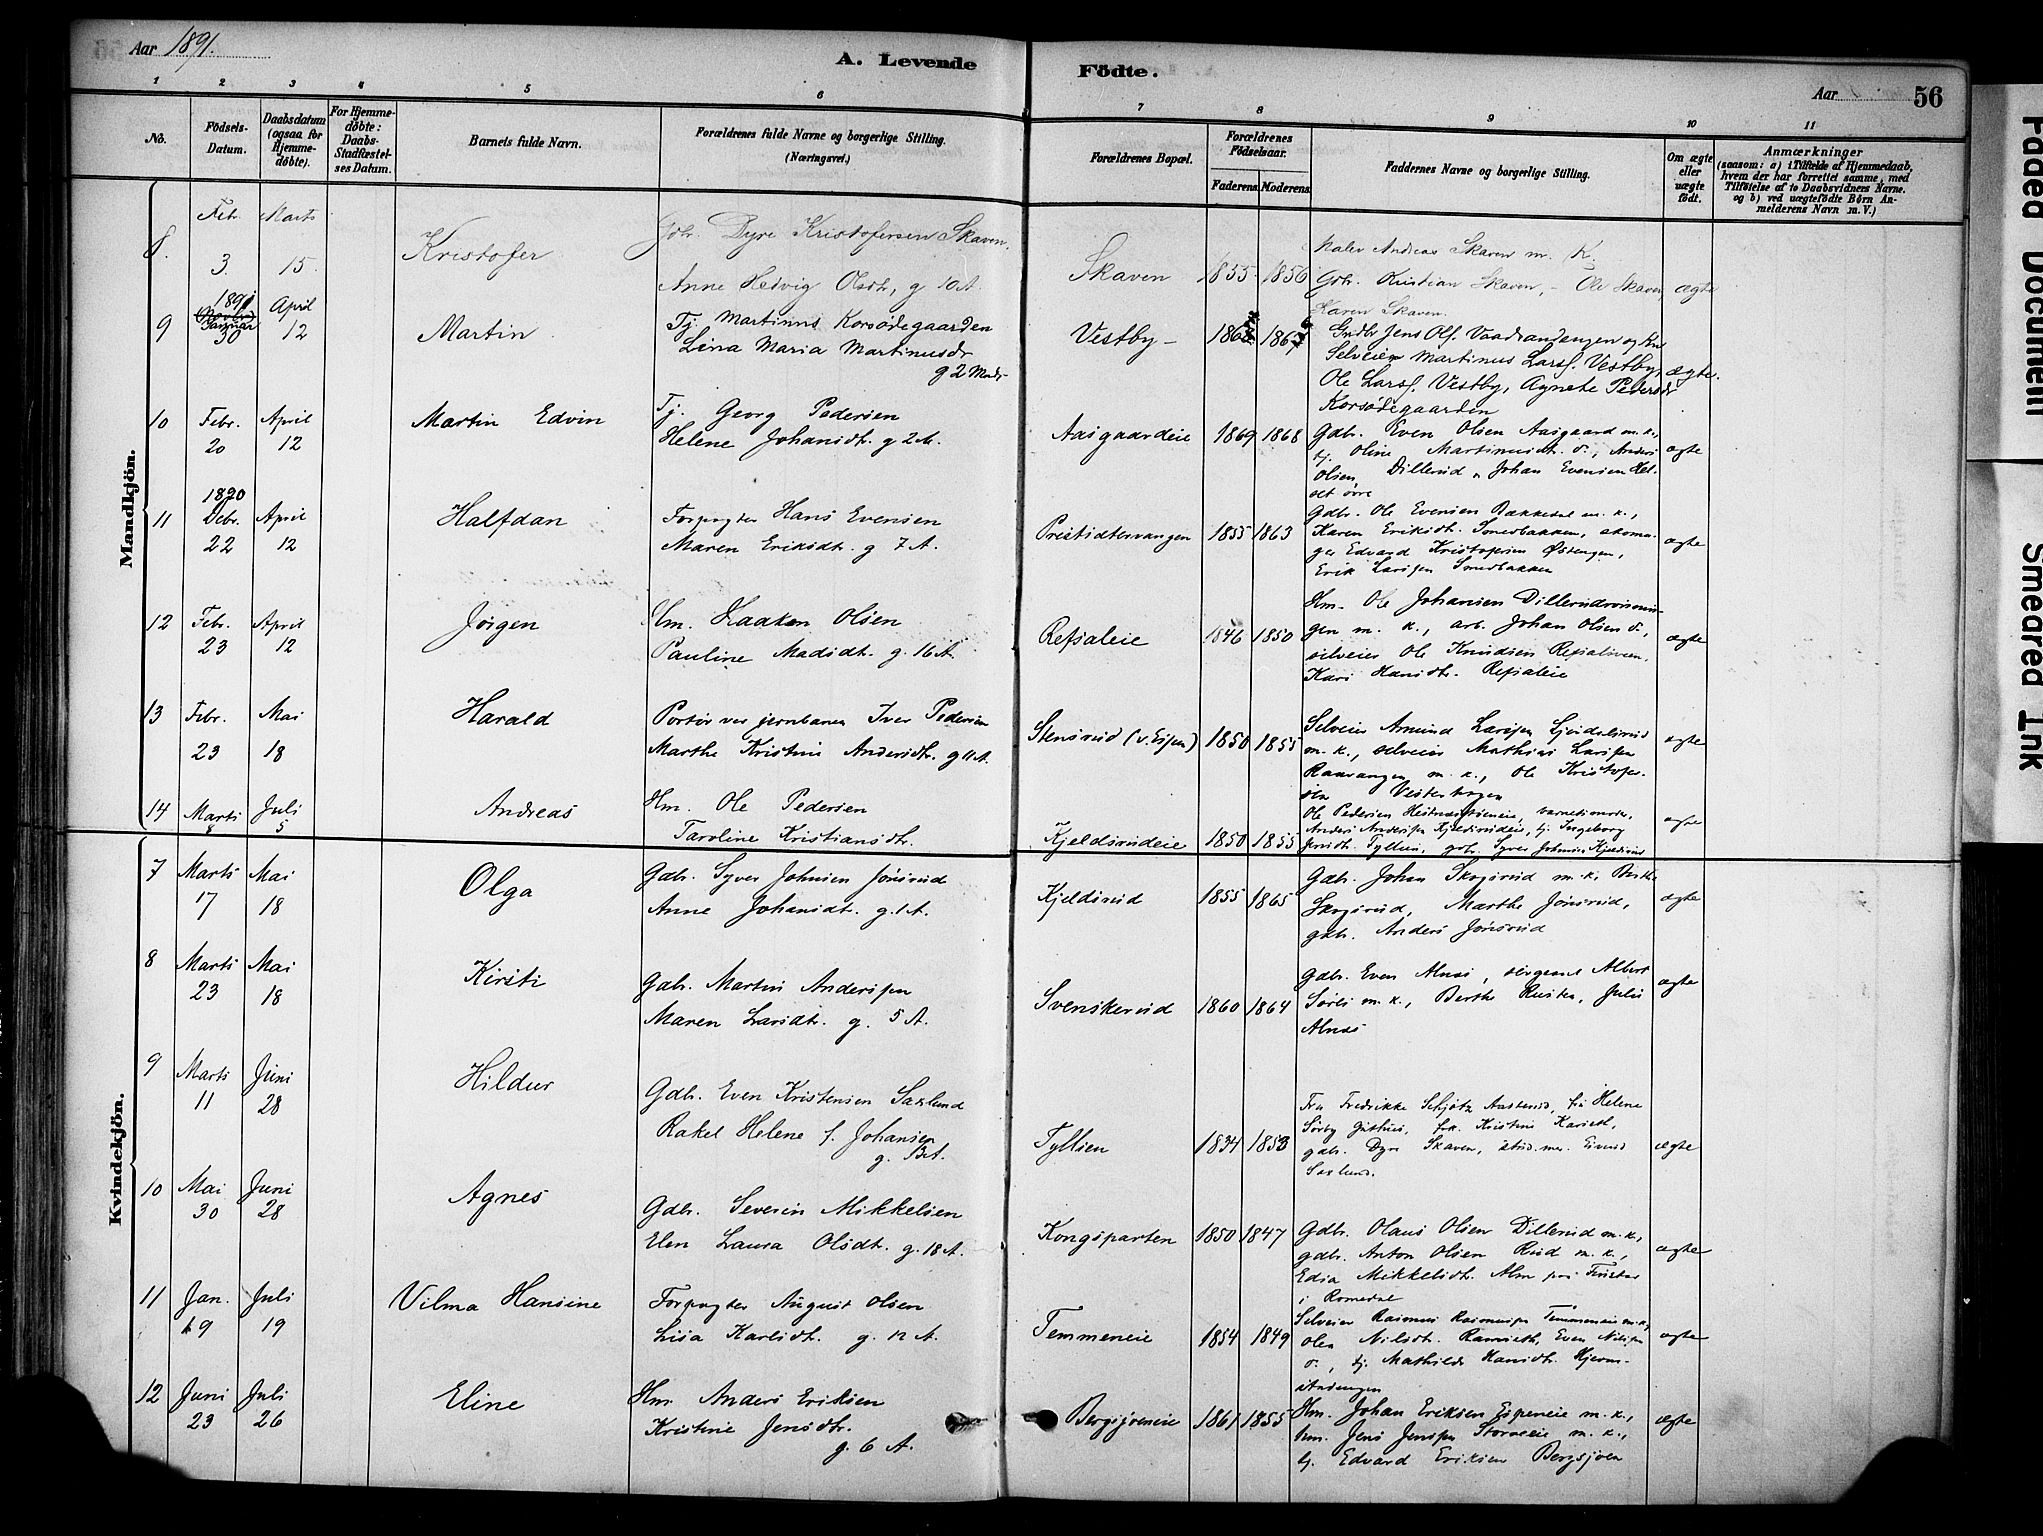 Aar 1891.
A. Levende
Födte.
Aar
56
1 2 3 4 5 6 7 8 9 10 11
No.
Födsels-Datum.
Daabsdatum (ogsaa for Hjemme-döbte).
For Hjemme-döbte: Daabs-Stadfæstel-ses Datum.
Barnets fulde Navn.
Forældrenes fulde Navne og borgerlige Stilling.
(Næringsvei.)
Forældrenes Bopæl.
Forældrenes Födselsaar.
Faderens. Moderens.
Faddernes Navne og borgerlige Stilling.
Om ægte eller uægte födt.
Anmærkninger
(saasom: a) i Tilfælde af Hjemmedaab,
hvem der har forrettet samme, med
Tilföielse af to Daabsvidners Navne.
og b) ved uægtefödte Börn An-
melderens Navn m. V.)
Mandkjön.
8. Febr. 3. Marts 15. Kristofer
Gdbr. Dyre Kristofersen Skaven.
Anne Hedvig Olsdtr, g 10 A.
Skaven 1855 1856
Maler Andreas Skaven m. K.
Gdbr. Kristian Skaven, - Ole Skaven,
Karen Skaven.
ægte
9 1891 Januar 30 April 12 Martin
Tj. Martinus Korsödegaarden
Lina Maria Martinusdr
g 2 Mndr
Vestby
Gndbr Jens Ols. Vaadrandengen og Kn
Selveier Martinus Larss. Vestby,
Ole Larss. Vestby, Agnete Pedersdr
Korsödegaarden
ægte.
10 Febr. 20 April 12 Martin Edvin
Tj. Georg Pedersen
Helene Johansdtr. g 2 M.
Aasgaardeie 1869 1868
Gdbr. Even Olsen Aasgaard m. k.,
tj. Oline Martinusdtr. s., Anders
Olsen Dillerud, Johan Evensen Hel-
set övre
ægte
11 1890 Debr. 22 April 12 Halfdan
Forpagter Hans Evensen
Maren Eriksdtr. g 7 A.
Prestsætervangen 1855 1863
Gdbr. Ole Evensen Bækkedal m. k.,
Karen Eriksdtr. Smedbakken, skoma-
ger Edvard Kristofersen Östengen,
Erik Larssen Smedbakken
ægte
12 Febr. 23 April 12 Jörgen
Hm. Haaken Olsen
Pauline Madsdtr. g. 16 A.
Refsaleie 1846 1850
Hm. Ole Johansen
gen m. k., arb. Johan Olsen s.,
selveier Ole Knudsen
Kari Hansdtr. Refsaleie
ægte
13 Febr. 23 Mai 18 Harald
Portör ved jernbanen Iver Pedersen
Marthe Kristine Andersdtr. g 11 A.
Stensrud (v. Espen) 1850 1855
Selveier Amund Larssen
m. k., selveier Mathias Larssen
Raavangen m. k., Ole Kristofer-
sen Vesterhagen
ægte
14 Marts 8 Juli 5 Andreas
Hm. Ole Pedersen
Taroline Kristiansdtr.
Kjeldsrudeie 1850 1855
Ole Pedersen
Anders Anderssen Kjeldsrudeie, tj. Ingeborg
Jensdtr. Tyllien, gdbr. Syver Johnsen Kjeldsrud
ægte
Kvindekjön.
7 Marts 17 Mai 18 Olga
Gdbr. Syver Johnsen Jönsrud
Anne Johansdt. g. 1 A.
Kjeldsrud 1855 1865
Gdbr. Johan Skogsrud m. k. Berthe
Skogsrud, Marthe Jönsrud,
gdbr. Anders Jönsrud
ægte
8 Marts 23 Mai 18 Kirsti
Gdbr. Martin Anderssen
Maren Larsdtr. g. 5 A.
Svenskerud 1860 1864
Gdbr. Even Alnæs, sergeant Albert
Sörli m. k., Berthe Rusten, Julie
Alnæs
ægte
9 Marts 11 Juni 28 Hildur
Gdbr. Even Kristensen Saxlund
Rakel Helene f. Johansen
Tyllien 1834 1853
Fru Fredrikke Schjötz Aasterud, fru Helene
Sörby Guthus, frk. Kristine
gdbr. Dyre Skaven, stud. med. Eivind
Saxlund.
ægte
10 Mai 30 Juni 28 Agnes
Gdbr. Severin Mikkelsen
Elen Laura Olsdt. g. 18 A.
Kongsparten 1850 1847
Gdbr. Olaus Olsen Dillerud m. k.,
gdbr. Anton Olsen Rud m. k.,
Edia Mikkelsdtr. Alm paa Finstad
i Romedal
ægte
11 Jan. 19 Juli 19 Vilma Hansine
Forpagter August Olsen
Lisa Karlsdtr. g. 12 A.
Temmeneie 1854 1849
Selveier Rasmus Rasmussen Temmeneie m. k.,
Olea Nilsdt. Ramseth, Even Nilssen
s., tj. Mathilde Hansdtr. Hjerm-
stadengen
ægte
12 Juni 23 Juli 26 Eline
Hm. Anders Eriksen
Kristine Jensdtr.
g. 6 A.
Bergsjöeneie 1861 1855
Hm. Johan Eriksen Espeneie m. k.,
hm. Jens Jenssen Storneie m. k.,
tj. Edvard Eriksen Bergsjöen
ægte
Faded Document
Smeared Ink